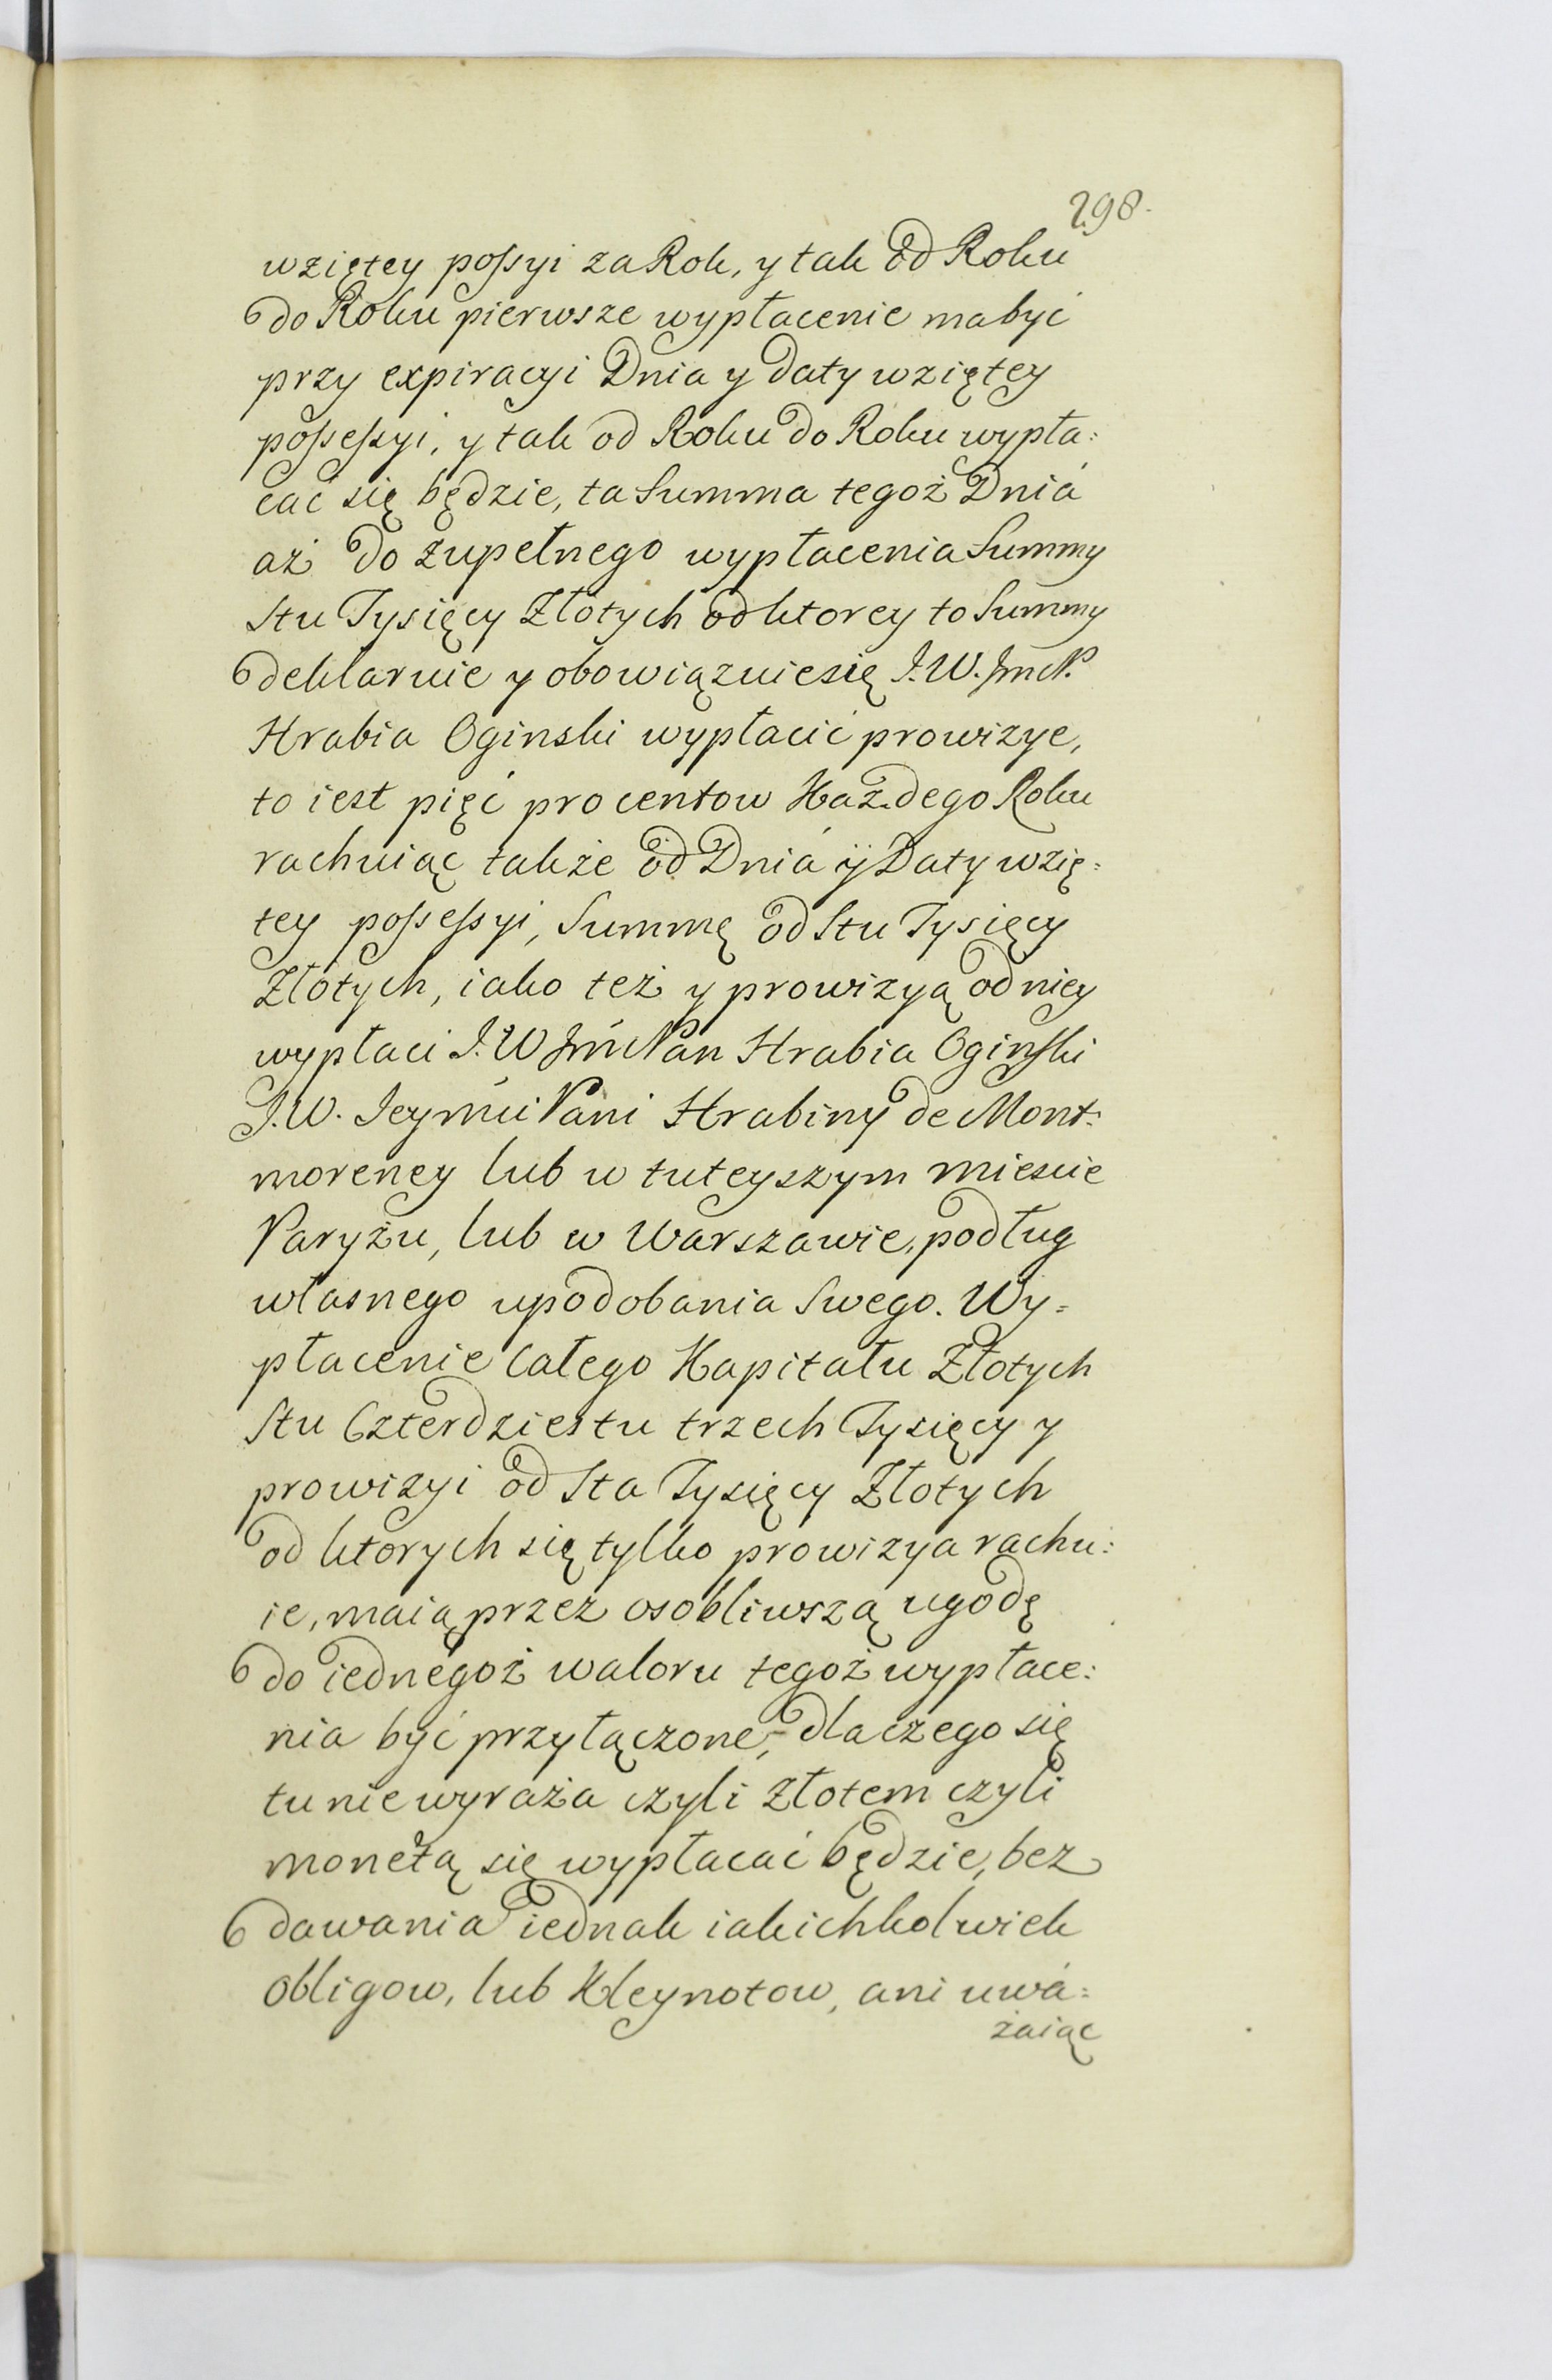 298.
wziętey possyi za Rok, y tak od Roku
do Roku pierwsze wypłacenie ma być
przy expiracyi Dnia y daty wziętey
possessyi, y tak od Roku do Roku wypła:
cać się będzie, ta Summa tegoż Dnia
aż do zupełnego wypłacenia Summy
Stu Tysięcy Złotych od ktorey to Summy
deklaruie y obowiązuie się J.W. Jmć P.
Hrabia Oginski wypłacić prowizye,
to iest pięć procentow Każdego Roku
rachuiąc także od Dnia ÿ Daty wzię=
tey possessyi, Summę od Stu Tysięcy
Złotych, iako też y prowizyą od niey
wypłaci J.W Jmć Pan Hrabia Oginski
J.W. Jeymći Pani Hrabiny de Mont:
morency lub w tuteyszym miescie
Paryżu, lub w Warszawie, podług
własnego upodobania Swego. Wy=
płacenie Całego Kapitału Złotych
Stu Czterdziestu trzech Tysięcy y
prowizyi od Sta Tysięcy Złotych
od ktorych się tylko prowizya rachu:
ie, maią przez osobliwszą ugodę
do iednegoż waloru tegoż wypłace:
nia być przyłączone, dlaczego się
tu nie wyraża czyli złotem czyli
monetą się wypłacać będzie, bez
dawania iednak iakichkolwiek
Obligow, lub Kleynotow, ani uwa:
żaiąc